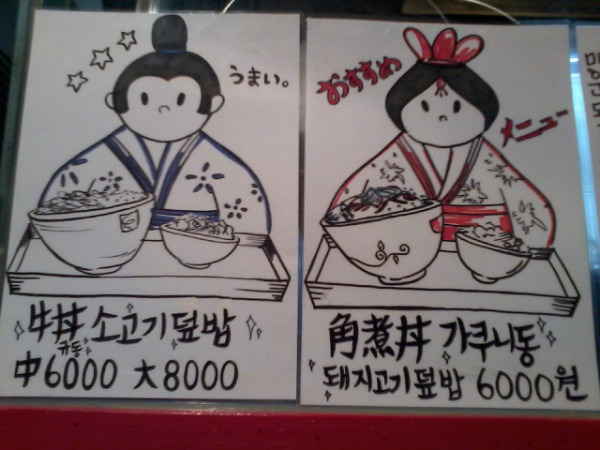 うまい。
牛丼 소고기덮밥
규동
中6000 大8000
おすすめ
メニュー
角煮丼 가쿠니동
돼지고기덮밥 6000원